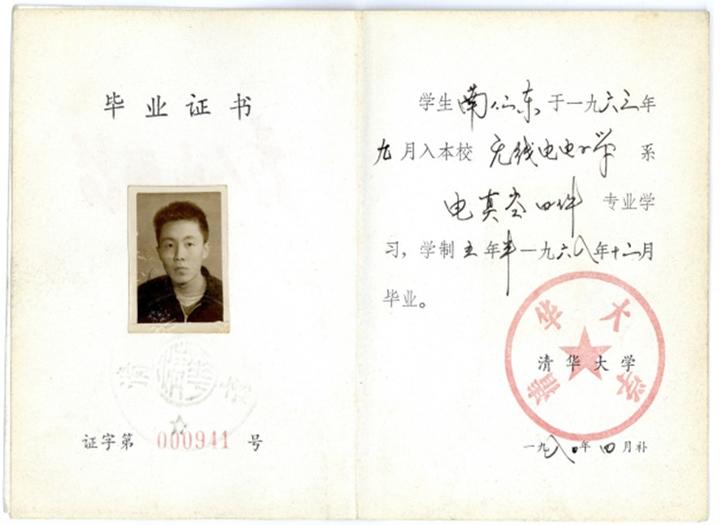 毕业证书
证字第 000941 号
学生南仙东于一九六三年
九月入本校 无线电电子学 系
电真空四件 专业学
习，学制五年半一九六八年十二月
毕业。
清华大学
清华大学
一九八〇年四月补